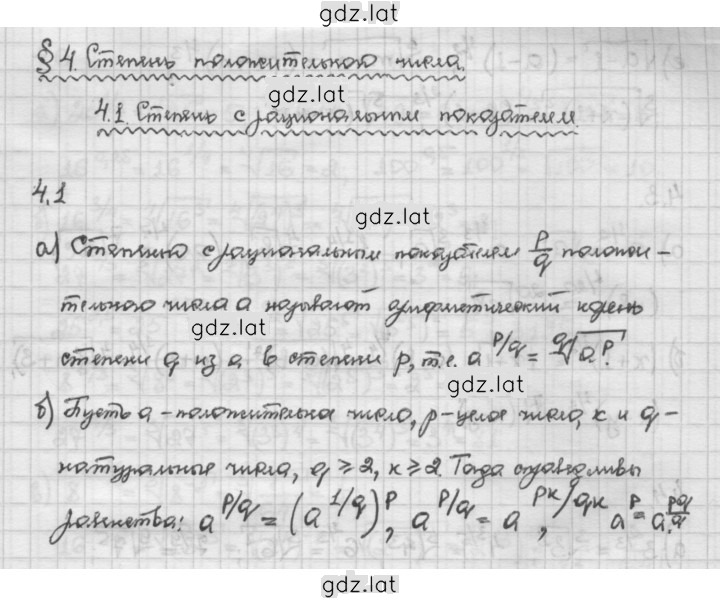 gdz.lat
§ 4. Степень положительного числа.
gdz.lat
4.1. Степень с рациональным показателем.
4.1
gdz.lat
а) Степенью с рациональным показателем p/q положи-
тельного числа a называют арифметический корень
gdz.lat
степени q из a в степени p, т.е. a^{p/q} = \sqrt[q]{a^p}.
gdz.lat
б) Пусть a - положительное число, p - целое число, к и q -
натуральные числа, q ≥ 2, к ≥ 2. Тогда справедливы
равенства: a^{p/q} = (a^{1/q})^p, a^{p/q} = a^{pк/qк}, a^p = a^{pq/q}.
gdz.lat